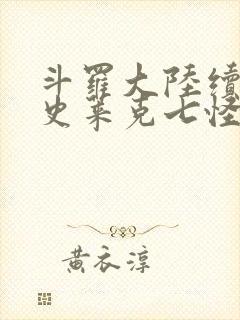 斗羅大陸續
史萊克七怪
黃衣淳